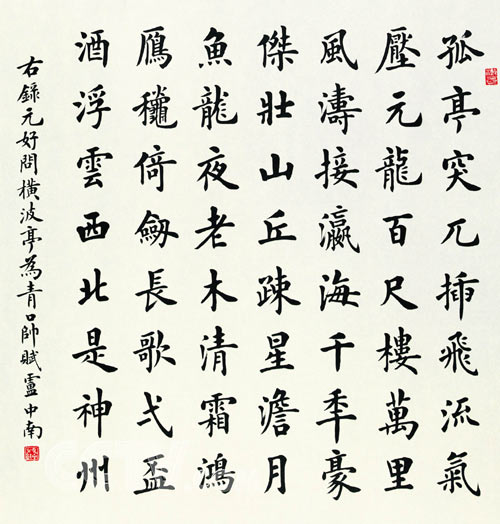 孤亭突兀插飛流氣
壓元龍百尺樓萬里
風濤接瀛海千秊豪
傑壯山丘疎星澹月
魚龍夜老木清霜鴻
鴈穐倚劔長歌弌盃
酒浮雲西北是神州
右錄元好問橫波亭為青口帥賦盧中南